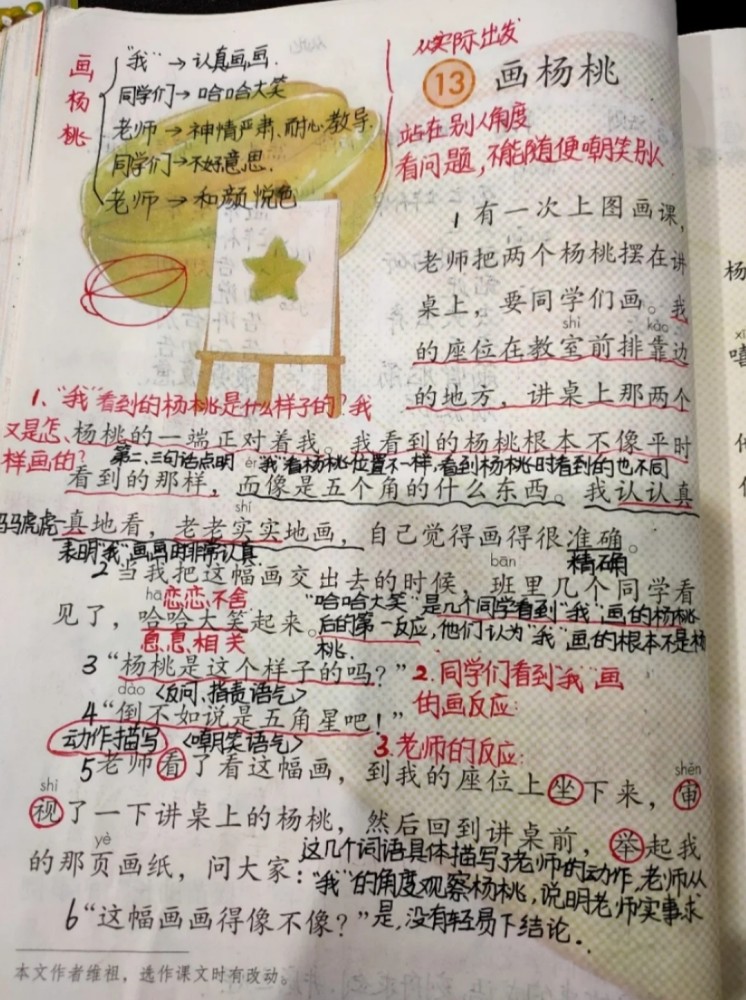 画杨桃
"我"→认真画画
同学们→哈哈大笑
老师→神情严肃、耐心教导.
同学们→不好意思.
老师→和颜悦色
从实际出发
13 画杨桃
站在别人角度
看问题,不能随便嘲笑别人
1 有一次上图画课,
老师把两个杨桃摆在讲
桌上,要同学们画。我
shì kào
的座位在教室前排靠边
的地方,讲桌上那两个
1、"我"看到的杨桃是什么样子的?我
又是怎、
样画的?
杨桃的一端正对着我。我看到的杨桃根本不像平时
第二、三句话点明"我"看杨桃位置不一样,看到杨桃时看到的也不同
ér
看到的那样,而像是五个角的什么东西。我认认真
shí
马马虎虎
真地看,老老实实地画,自己觉得画得很准确。
表明"我"画画时非常认真
精确
bān
2 当我把这幅画交出去的时候,班里几个同学看
hā
恋恋不舍
"哈哈大笑"是几个同学看到"我"画的杨桃
见了,哈哈大笑起来。
后的第一反应,他们认为"我"画的根本不是杨
桃.
息息相关
3 "杨桃是这个样子的吗?"
2.同学们看到"我"画
的画反应:
dào
〈反问、指责语气〉
4 "倒不如说是五角星吧!"
动作描写
〈嘲笑语气〉
3.老师的反应:
5 老师看了看这幅画,到我的座位上坐下来,审
shì shěn
视了一下讲桌上的杨桃,然后回到讲桌前,举起我
yè
的那页画纸,问大家:
这几个词语具体描写了老师的动作,老师从
"我"的角度观察杨桃,说明老师实事求
是,没有轻易下结论.
6 "这幅画画得像不像?"
本文作者维祖,选作课文时有改动。
杨
xī
嘻